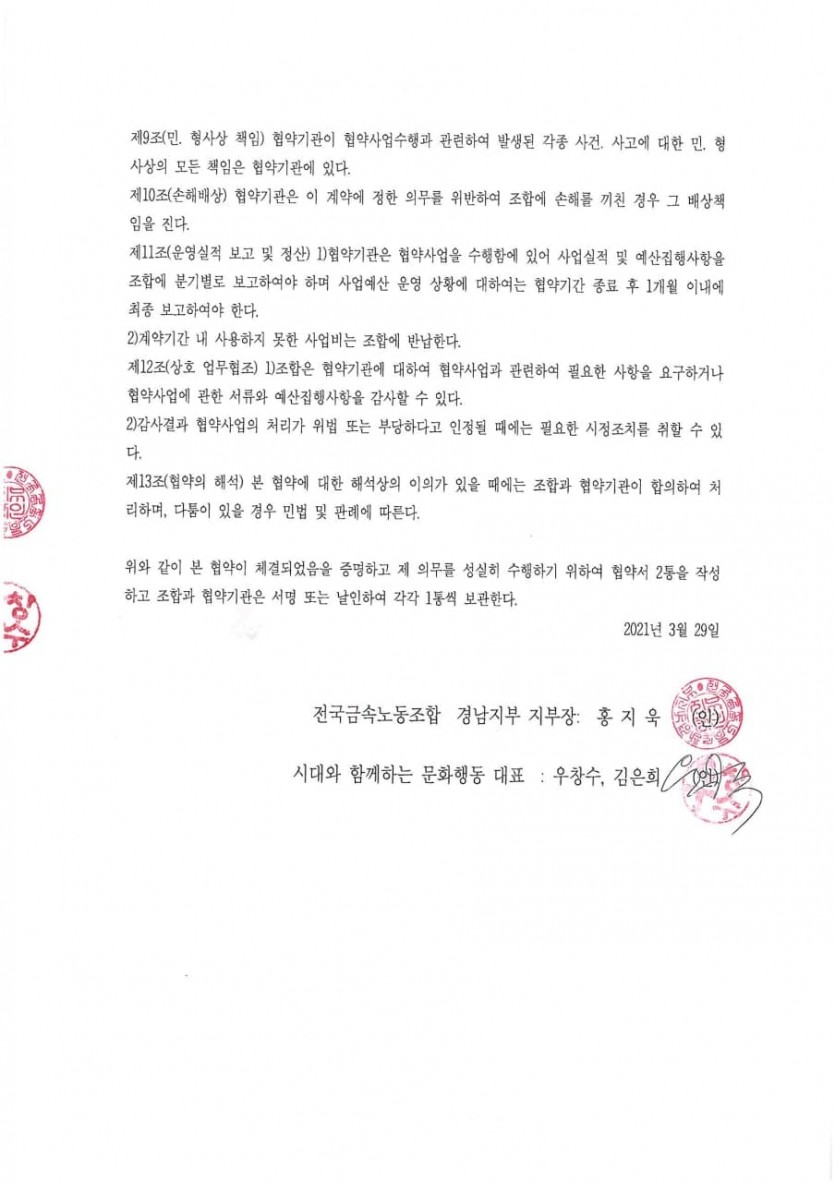 제9조(민. 형사상 책임) 협약기관이 협약사업수행과 관련하여 발생된 각종 사건. 사고에 대한 민. 형
사상의 모든 책임은 협약기관에 있다.
제10조(손해배상) 협약기관은 이 계약에 정한 의무를 위반하여 조합에 손해를 끼친 경우 그 배상책
임을 진다.
제11조(운영실적 보고 및 정산) 1)협약기관은 협약사업을 수행함에 있어 사업실적 및 예산집행사항을
조합에 분기별로 보고하여야 하며 사업예산 운영 상황에 대하여는 협약기간 종료 후 1개월 이내에
최종 보고하여야 한다.
2)계약기간 내 사용하지 못한 사업비는 조합에 반납한다.
제12조(상호 업무협조) 1)조합은 협약기관에 대하여 협약사업과 관련하여 필요한 사항을 요구하거나
협약사업에 관한 서류와 예산집행사항을 감사할 수 있다.
2)감사결과 협약사업의 처리가 위법 또는 부당하다고 인정될 때에는 필요한 시정조치를 취할 수 있
다.
제13조(협약의 해석) 본 협약에 대한 해석상의 이의가 있을 때에는 조합과 협약기관이 합의하여 처
리하며, 다툼이 있을 경우 민법 및 판례에 따른다.
위와 같이 본 협약이 체결되었음을 증명하고 제 의무를 성실히 수행하기 위하여 협약서 2통을 작성
하고 조합과 협약기관은 서명 또는 날인하여 각각 1통씩 보관한다.
2021년 3월 29일
전국금속노동조합 경남지부 지부장: 홍 지 욱 (인)
시대와 함께하는 문화행동 대표 : 우창수, 김은희 (인)